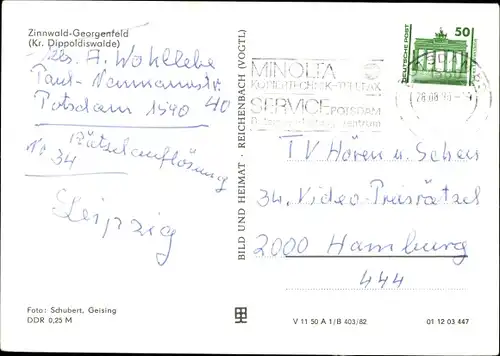 Zinnwald-Georgenfeld
(Kr. Dippoldiswalde)
A. Wohllebe
Paul-Neumannstr.
40
Potsdam 1590
Nr. 34
Rätselauflösung
Leipzig
Foto: Schubert, Geising
DDR 0,25 M
BILD UND HEIMAT · REICHENBACH (VOGTL)
V 11 50 A 1/B 403/82
01 12 03 447
DEUTSCHE POST
50
MINOLTA
KOPIERTECHNIK-TELEFAX
SERVICE POTSDAM
TV Hören u. Sehen
34. Video-Preisrätzel
2000 Hamburg
444